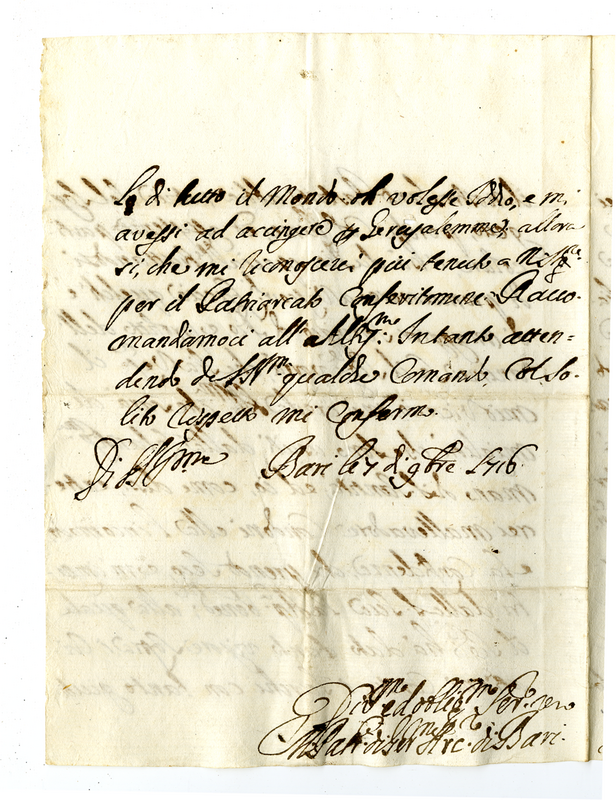 le di tutto il Mondo. oh volesse Iddio, e mi
avessi ad accingere p Gerusalemme, allora
sì, che mi riconoscerei più tenuto a
per il Patriarcato Conferitomene. Racco-
mandiamoci all' Altmo. Intanto atten-
dendo di qualche Comando, Col so-
lito rispetto mi Confermo.
Di Bari li 7 di 9bre 1716.
Divmo ed obligmo Ser. vero
di Arc. di Bari.